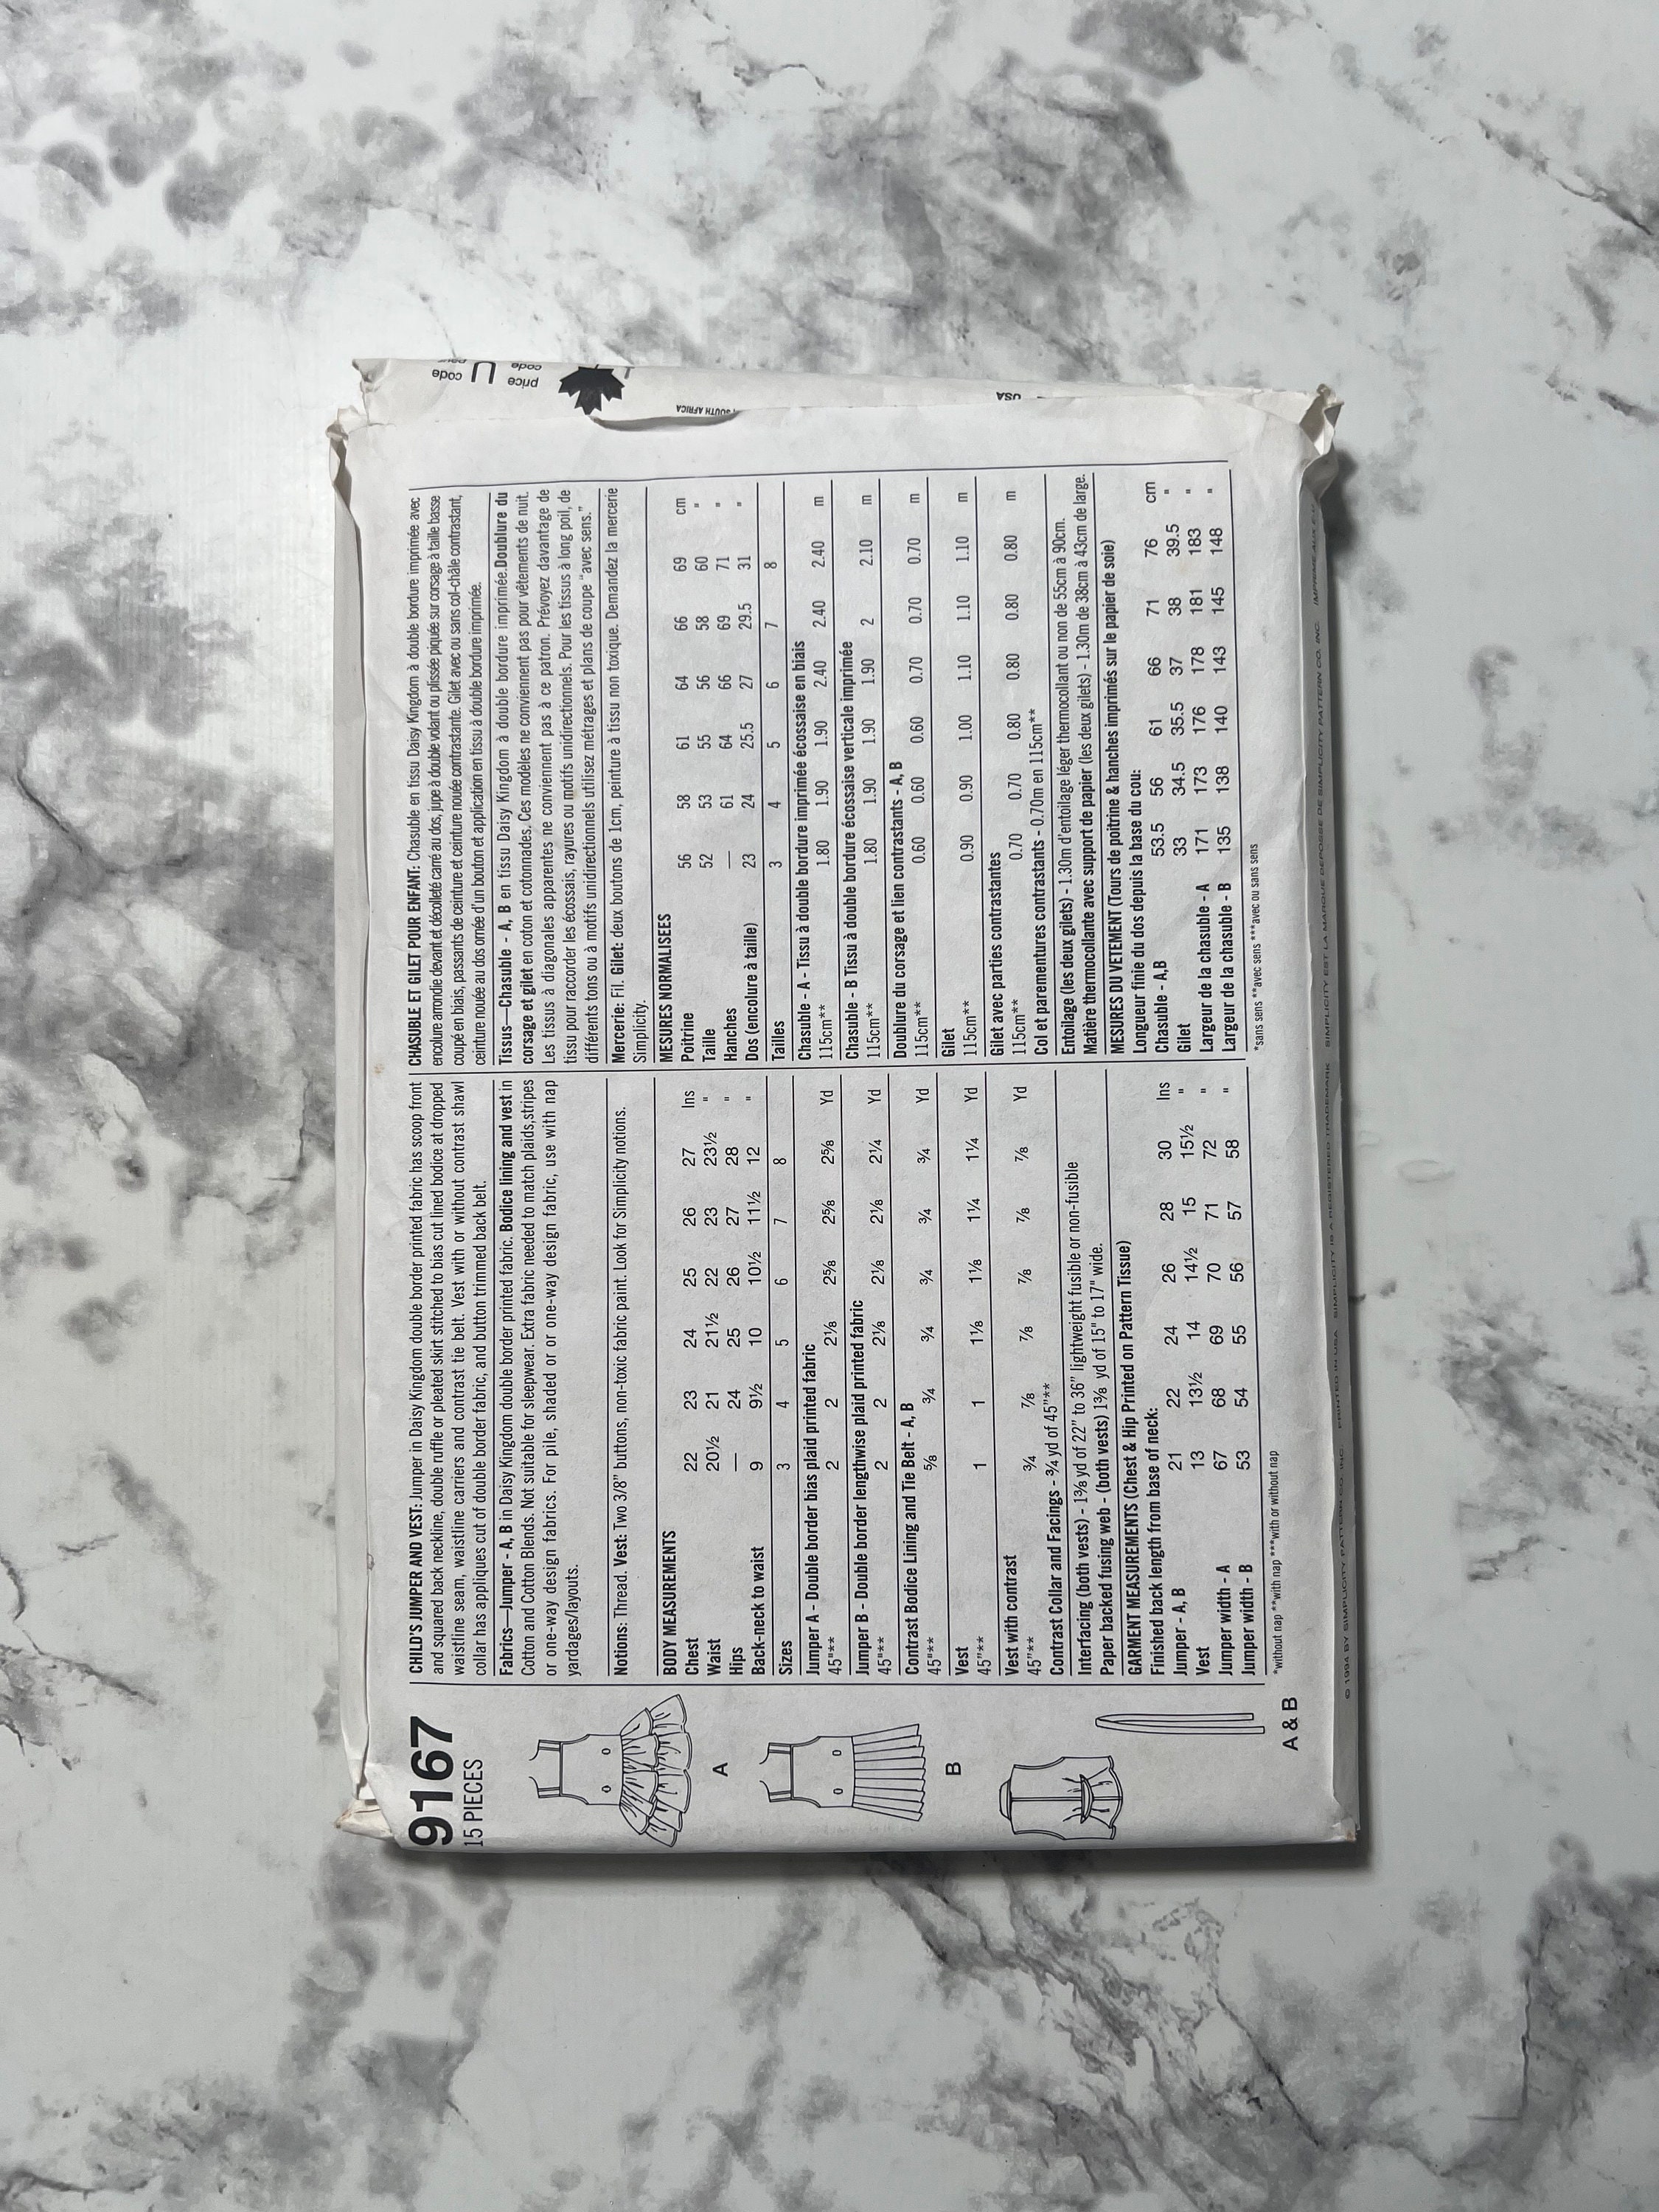 9167
15 PIECES
A
B
A & B
CHILD'S JUMPER AND VEST: Jumper in Daisy Kingdom double border printed fabric has scoop front
and squared back neckline, double ruffle or pleated skirt stitched to bias cut lined bodice at dropped
waistline seam, waistline carriers and contrast tie belt. Vest with or without contrast shawl
collar has appliques cut of double border fabric, and button trimmed back belt.
Fabrics—Jumper - A, B in Daisy Kingdom double border printed fabric. Bodice lining and vest in
Cotton and Cotton Blends. Not suitable for sleepwear. Extra fabric needed to match plaids,stripes
or one-way design fabrics. For pile, shaded or or one-way design fabric, use with nap
yardages/layouts.
Notions: Thread. Vest: Two 3/8" buttons, non-toxic fabric paint. Look for Simplicity notions.
BODY MEASUREMENTS
Chest 22 23 24 25 26 27 Ins
Waist 20½ 21 21½ 22 23 23½ "
Hips — 24 25 26 27 28 "
Back-neck to waist 9 9½ 10 10½ 11½ 12 "
Sizes 3 4 5 6 7 8
Jumper A - Double border bias plaid printed fabric
45"** 2 2 2⅛ 2⅝ 2⅝ 2⅝ Yd
Jumper B - Double border lengthwise plaid printed fabric
45"** 2 2 2⅛ 2⅛ 2⅛ 2¼ Yd
Contrast Bodice Lining and Tie Belt - A, B
45"** ⅝ ¾ ¾ ¾ ¾ ¾ Yd
Vest
45"** 1 1 1⅛ 1⅛ 1¼ 1¼ Yd
Vest with contrast
45"** ¾ ⅞ ⅞ ⅞ ⅞ ⅞ Yd
Contrast Collar and Facings - ¾ yd of 45"**
Interfacing (both vests) - 1⅜ yd of 22" to 36" lightweight fusible or non-fusible
Paper backed fusing web - (both vests) 1⅜ yd of 15" to 17" wide.
GARMENT MEASUREMENTS (Chest & Hip Printed on Pattern Tissue)
Finished back length from base of neck:
Jumper - A, B 21 22 24 26 28 30 Ins
Vest 13 13½ 14 14½ 15 15½ "
Jumper width - A 67 68 69 70 71 72 "
Jumper width - B 53 54 55 56 57 58 "
*without nap **with nap ***with or without nap
CHASUBLE ET GILET POUR ENFANT: Chasuble en tissu Daisy Kingdom à double bordure imprimée avec
encolure arrondie devant et décolleté carré au dos, jupe à double volant ou plissée piquée sur corsage à taille basse
coupé en biais, passants de ceinture et ceinture nouée contrastante. Gilet avec ou sans col-châle contrastant,
ceinture nouée au dos ornée d'un bouton et application en tissu à double bordure imprimée.
Tissus—Chasuble - A, B en tissu Daisy Kingdom à double bordure imprimée.Doublure du
corsage et gilet en coton et cotonnades. Ces modèles ne conviennent pas pour vêtements de nuit.
Les tissus à diagonales apparentes ne conviennent pas à ce patron. Prévoyez davantage de
tissu pour raccorder les écossais, rayures ou motifs unidirectionnels. Pour les tissus à long poil, de
différents tons ou à motifs unidirectionnels utilisez métrages et plans de coupe "avec sens."
Mercerie: Fil. Gilet: deux boutons de 1cm, peinture à tissu non toxique. Demandez la mercerie
Simplicity.
MESURES NORMALISEES
Poitrine 56 58 61 64 66 69 cm
Taille 52 53 55 56 58 60 "
Hanches — 61 64 66 69 71 "
Dos (encolure à taille) 23 24 25.5 27 29.5 31 "
Tailles 3 4 5 6 7 8
Chasuble - A - Tissu à double bordure imprimée écossaise en biais
115cm** 1.80 1.90 1.90 2.40 2.40 2.40 m
Chasuble - B Tissu à double bordure écossaise verticale imprimée
115cm** 1.80 1.90 1.90 1.90 2 2.10 m
Doublure du corsage et lien contrastants - A, B
115cm** 0.60 0.60 0.60 0.70 0.70 0.70 m
Gilet
115cm** 0.90 0.90 1.00 1.10 1.10 1.10 m
Gilet avec parties contrastantes
115cm** 0.70 0.70 0.80 0.80 0.80 0.80 m
Col et parementures contrastants - 0.70m en 115cm**
Entoilage (les deux gilets) - 1.30m d'entoilage léger thermocollant ou non de 55cm à 90cm.
Matière thermocollante avec support de papier (les deux gilets) - 1.30m de 38cm à 43cm de large.
MESURES DU VETEMENT (Tours de poitrine & hanches imprimés sur le papier de soie)
Longueur finie du dos depuis la base du cou:
Chasuble - A,B 53.5 56 61 66 71 76 cm
Gilet 33 34.5 35.5 37 38 39.5 "
Largeur de la chasuble - A 171 173 176 178 181 183 "
Largeur de la chasuble - B 135 138 140 143 145 148 "
*sans sens **avec sens ***avec ou sans sens
© 1994 BY SIMPLICITY PATTERN CO. INC. PRINTED IN USA SIMPLICITY IS A REGISTERED TRADEMARK SIMPLICITY EST LA MARQUE DEPOSEE DE SIMPLICITY PATTERN CO. INC. IMPRIME AUX E.U.
code
U
price
code
SOUTH AFRICA
USA